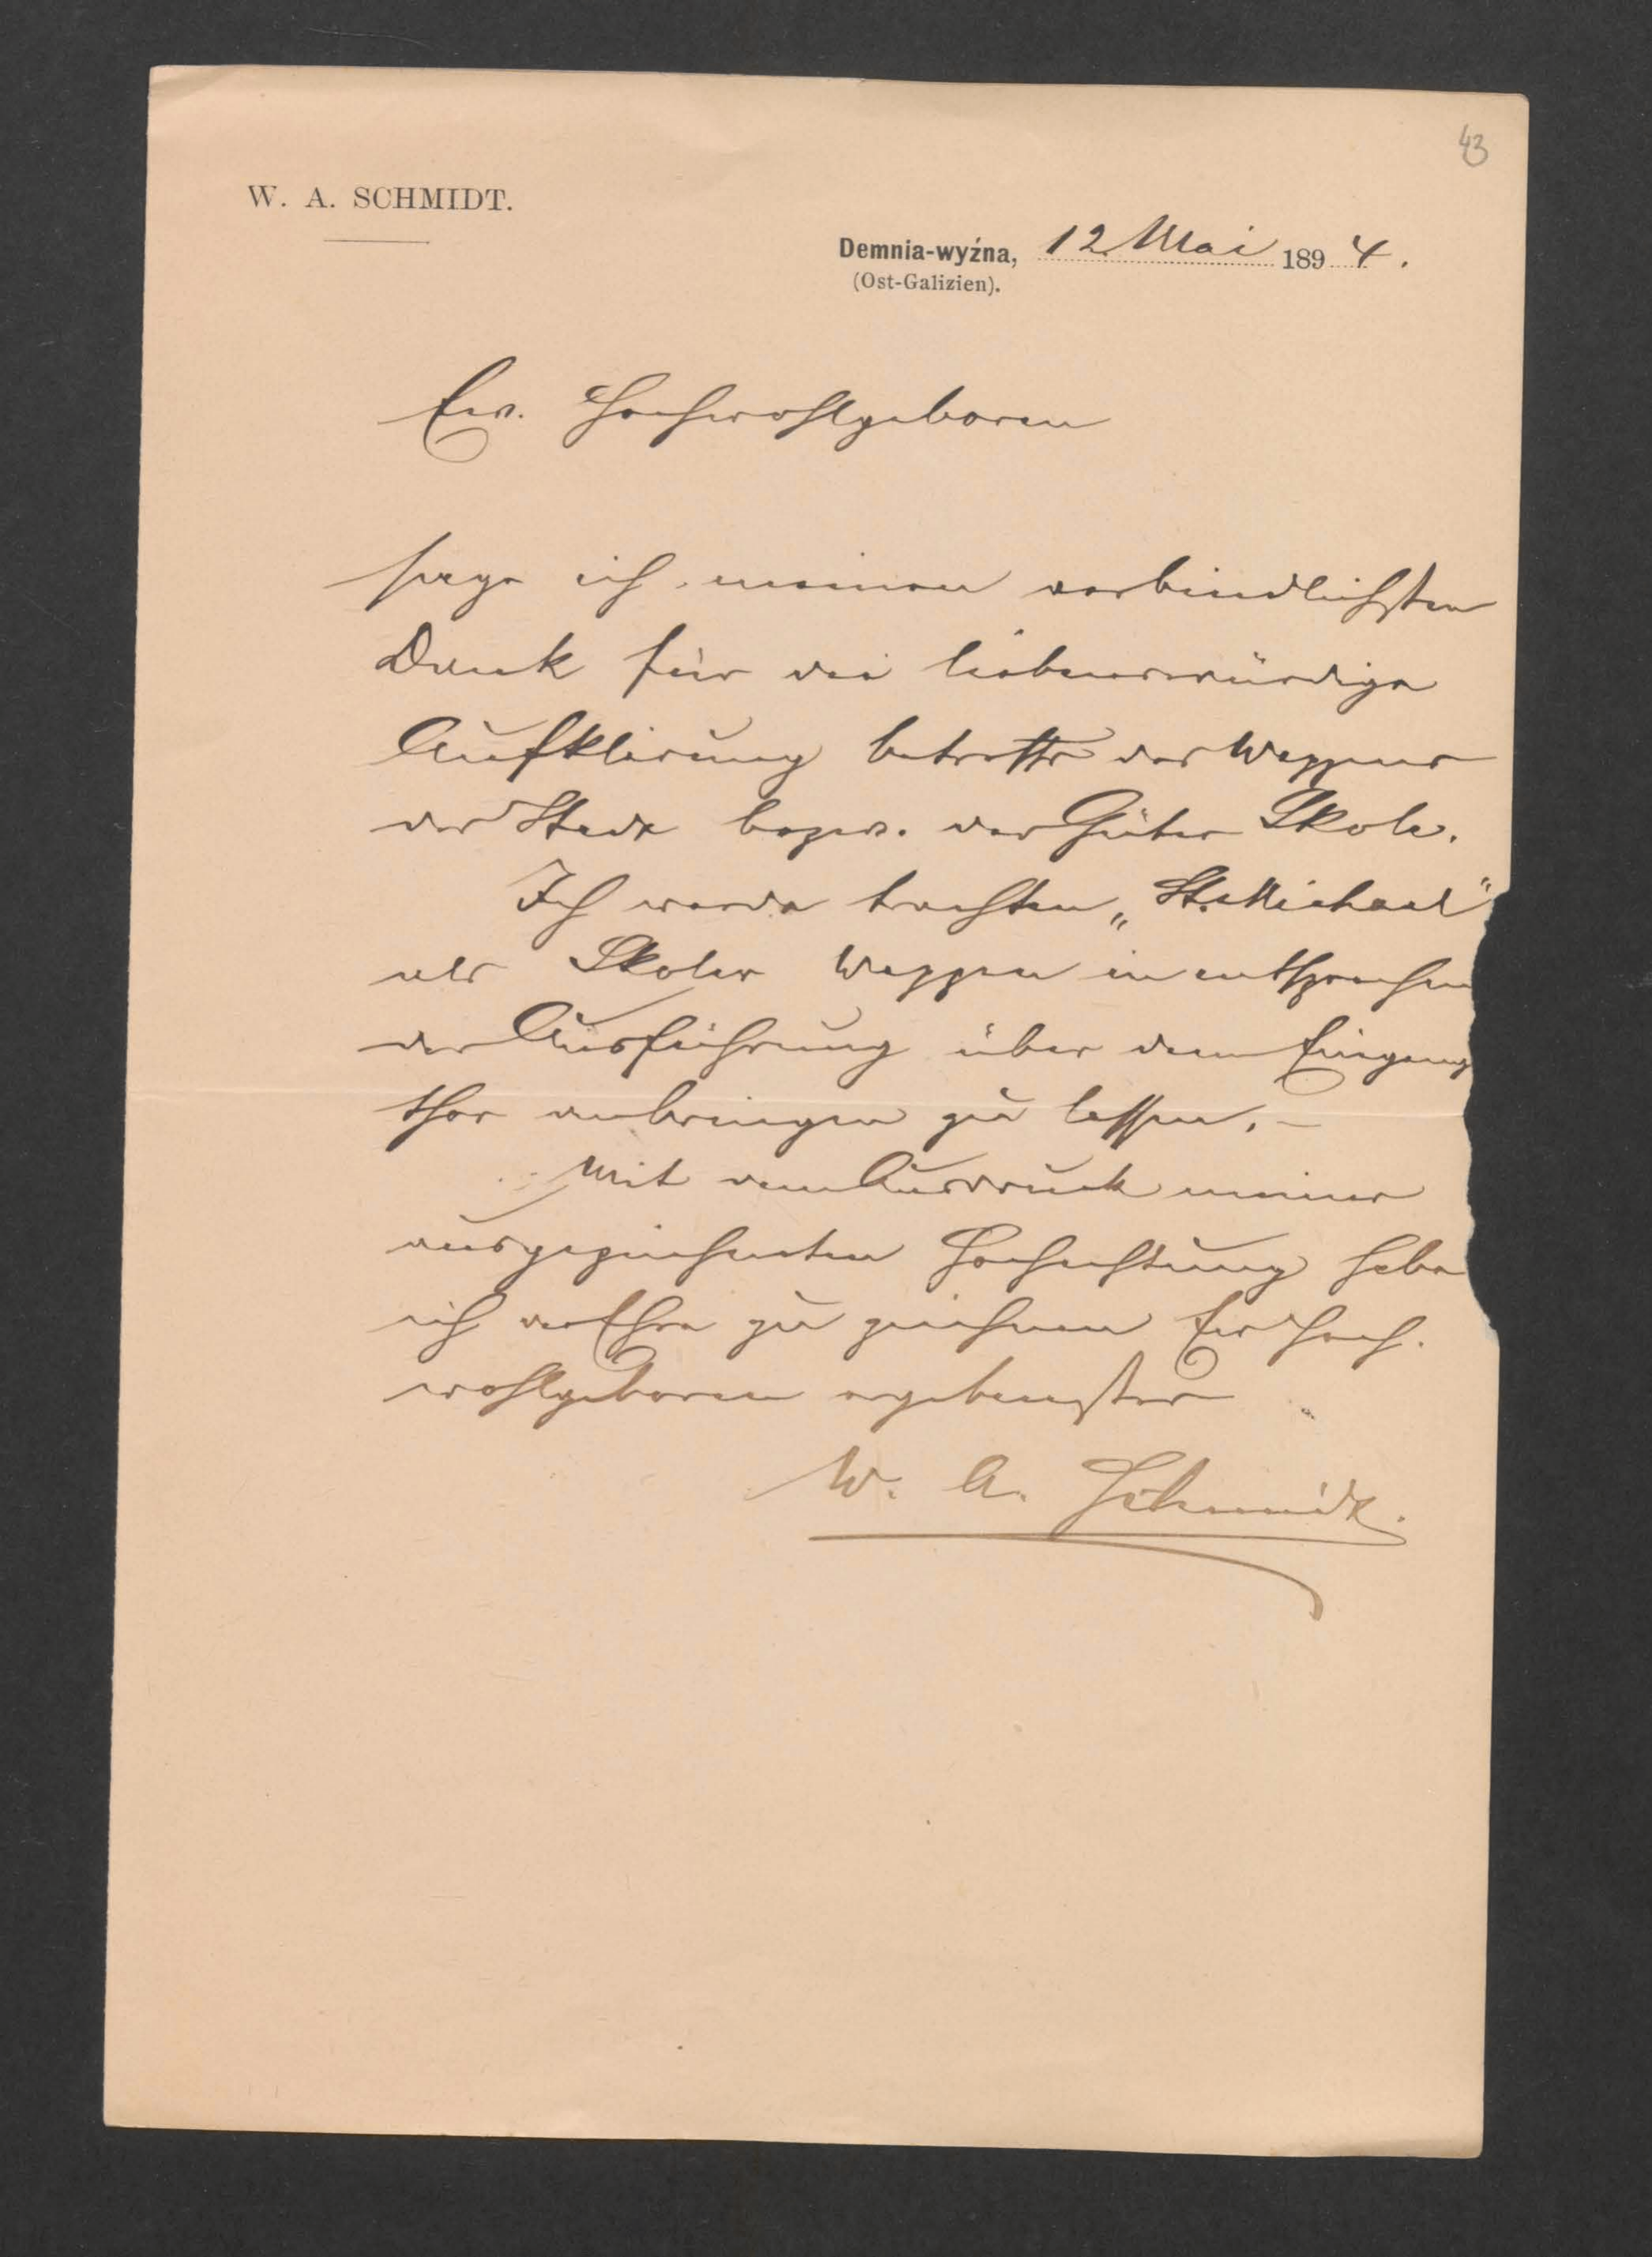 43
W. A. SCHMIDT.
Demnia-wyźna, 12 Mai 1894.
(Ost-Galizien).
Ew. Hochwohlgeboren
sage ich meinen verbindlichsten
Dank für die liebenswürdige
Aufklärung betreffs des Wappens
der Stadt bezw. der Güter Skole.
Ich werde trachten „St. Michael"
als Skoler Wappen in entsprechen
der Ausführung über dem Eingang
thor anbringen zu lassen. –
Mit dem Ausdruck meiner
ausgezeichneten Hochachtung habe
ich die Ehre zu zeichnen Ew Hoch.
wohlgeboren ergebenster
W. A. Schmidt.